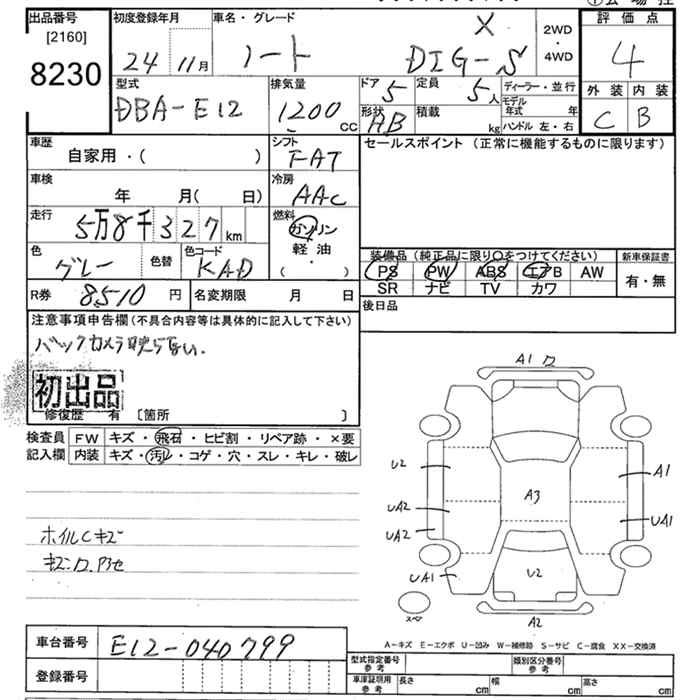 出品番号 初度登録年月 車名・グレード 評価点
[2160] 8230
24 11月 ノート X DIG-S 2WD・4WD 4
型式 排気量 ドア 5 定員 5人 ディーラー・並行 外装 内装
DBA-E12 1200cc 形状 HB 積載 kg モデル年式 年 ハンドル 左・右 C B
車歴 シフト セールスポイント (正常に機能するものに限ります)
自家用・( ) FAT
車検 冷房
年 月( 日) AAC
走行 燃料
5万8千327km ガソリン
軽油
・( )
色 色替 色コード 装備品 (純正品に限り〇をつけてください) 新車保証書
グレー KAD PS PW ABS エアB AW 有・無
SR ナビ TV カワ
R券 8510円 名変期限 月 日 後日品
注意事項申告欄 (不具合内容等は具体的に記入して下さい)
バックカメラ映らない.
初出品
修復歴 有 〔箇所 〕
検査員 FW キズ・飛石・ヒビ割・リペア跡・×要
記入欄 内装 キズ・汚レ・コゲ・穴・スレ・キレ・破レ
A1
U2 A1
A3
UA2 UA1
UA2
UA1 U2
スペア A2
ホイルCキズ
A-キズ E-エクボ U-凹み W-補修跡 S-サビ C-腐食 XX-交換済
車台番号 E12-040799
登録番号
型式指定番号 参考 類別区分番号 参考
車庫証明用 参考 長さ cm 幅 cm 高さ cm